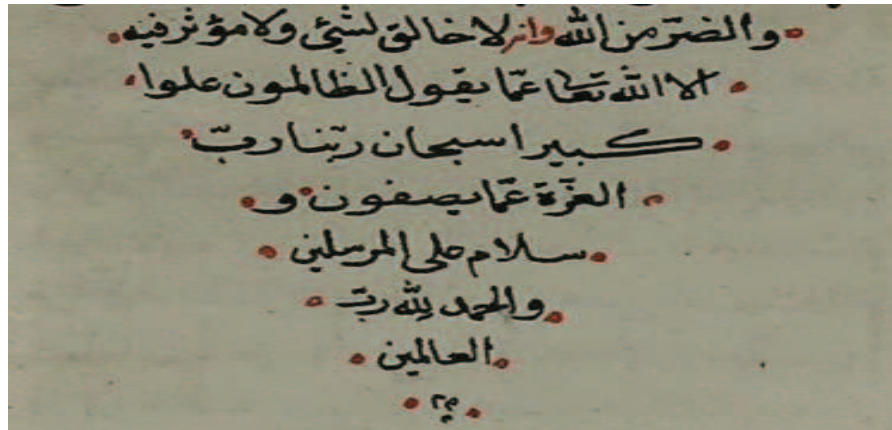 والضرّ من الله وانه لا خالق لشيئ ولا مؤثر فيه
الا الله تعا عمّا يقول الظالمون علوا
كبيرا سبحان ربّنا ربّ
العزّة عمّا يصفون و
سلام على المرسلين
والحمد لله ربّ
العالمين